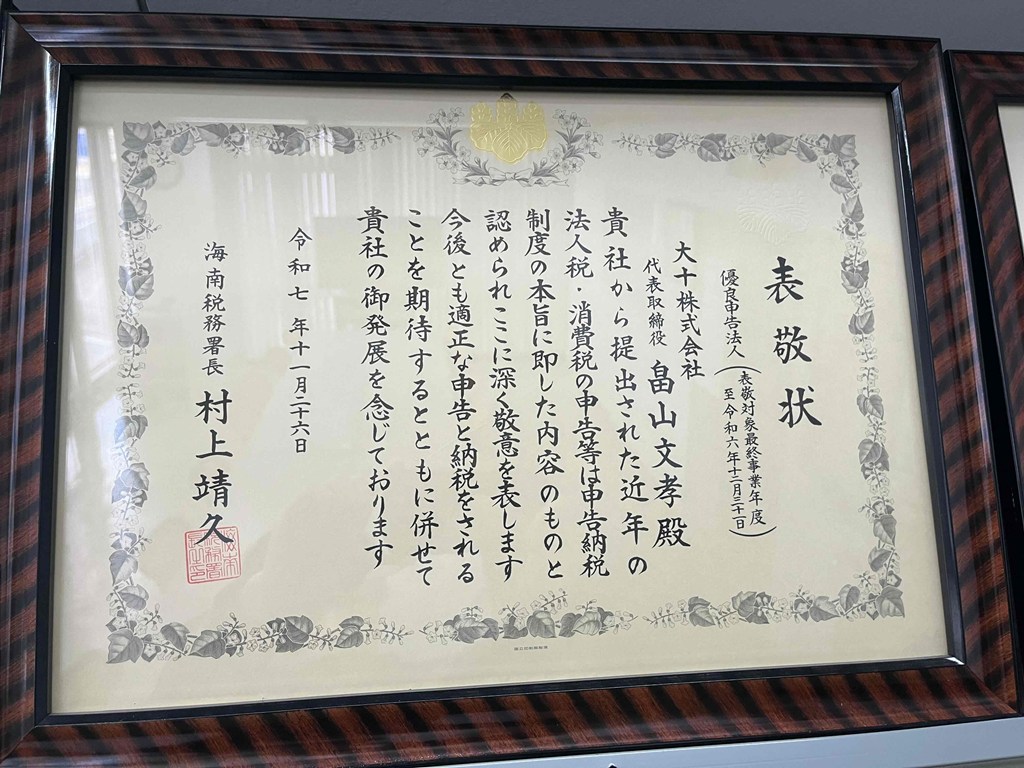 表敬状
優良申告法人(表敬対象最終事業年度 至令和六年十二月三十一日)
大十株式会社
代表取締役 畠山文孝殿
貴社から提出された近年の
法人税・消費税の申告等は申告納税
制度の本旨に即した内容のものと
認められここに深く敬意を表します
今後とも適正な申告と納税をされる
ことを期待するとともに併せて
貴社の御発展を念じております
令和七年十一月二十六日
海南税務署長 村上靖久